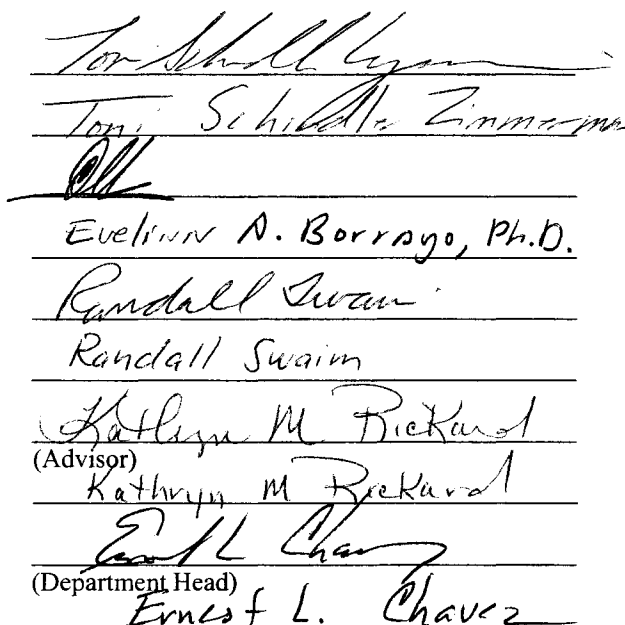 Toni Schindler Zimmerman
Evelinn A. Borrayo, Ph.D.
Randall Swaim
Randall Swaim
Kathryn M Rickard
(Advisor)
Kathryn M Rickard
Ernest L. Chavez
(Department Head)
Ernest L. Chavez